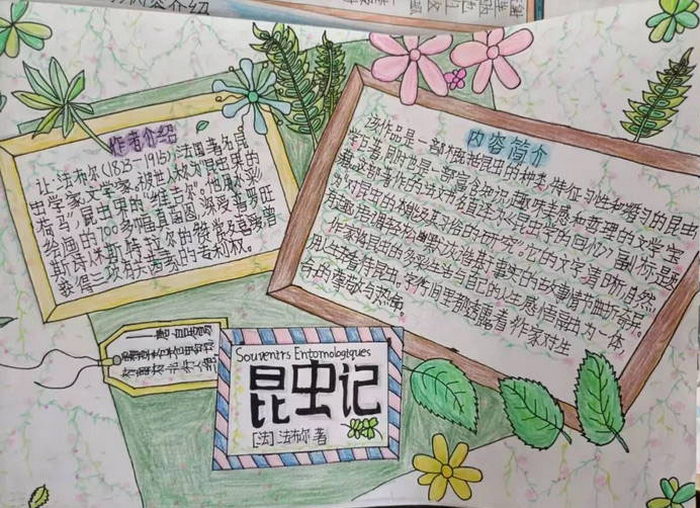 作者介绍
让·法布尔(1823-1915),法国著名昆
虫学家,文学家。被世人称为"昆虫界的
荷马",昆虫界的"维吉尔"。他用水彩
绘画的700多幅真菌图,深受普罗旺
斯诗人米斯特拉尔的赞赏及喜爱。曾
获得三次
的专利权。
内容简介
该作品是一部概括昆虫的种类、特征、习性和婚习的昆虫
学巨著,同时也是一部富含知识、趣味美感和哲理的文学宝
藏。这部著作的法文书名直译为《昆虫学的回忆》,副标题
"对昆虫的本能及其习俗的研究",它的文字清晰自然
有趣,语调轻松幽默
事实的故事情节曲折奇异。
作家将昆虫的多彩生活与自己的人生感悟融为一体,
用人性看待昆虫,字里行间都透露着作家对生
命的尊敬与热爱。
Souvenirs Entomologiques
昆虫记
[法]法布尔 著